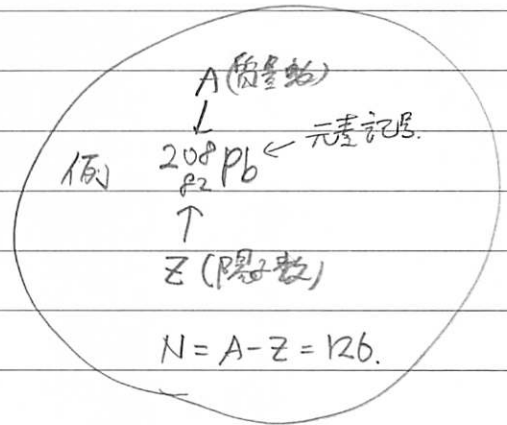 A(質量数)
↓
例 ²⁰⁸₈₂Pb ← 元素記号.
↑
Z (陽子数)
N = A - Z = 126.